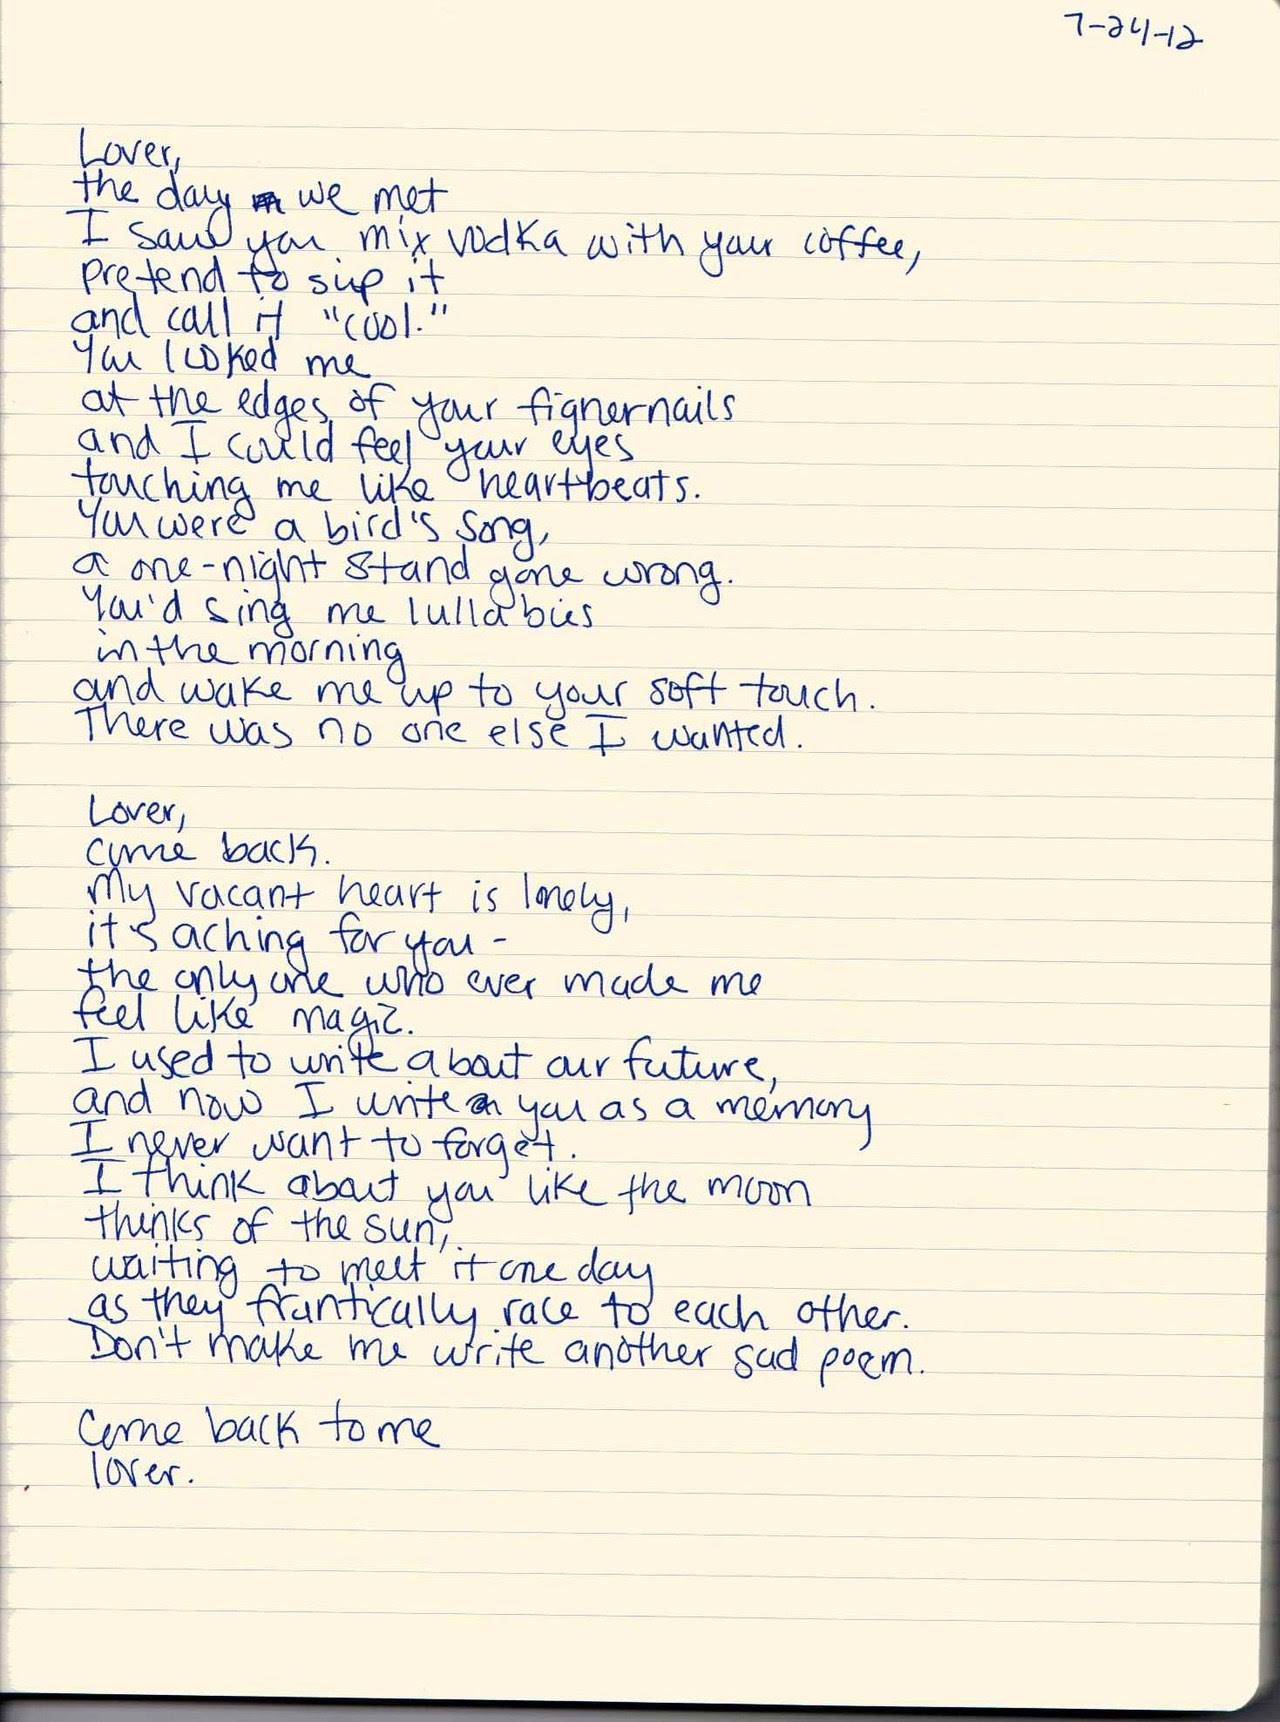 7-24-12
Lover,
the day we met
I saw you mix vodka with your coffee,
pretend to sip it
and call it "cool."
You looked me
at the edges of your fignernails
and I could feel your eyes
touching me like heartbeats.
You were a bird's song,
a one-night stand gone wrong.
You'd sing me lullabies
in the morning
and wake me up to your soft touch.
There was no one else I wanted.
Lover,
come back.
My vacant heart is lonely,
it's aching for you -
the only one who ever made me
feel like magic.
I used to write about our future,
and now I write you as a memory
I never want to forget.
I think about you like the moon
thinks of the sun,
waiting to melt it one day
as they frantically race to each other.
Don't make me write another sad poem.
Come back to me
lover.